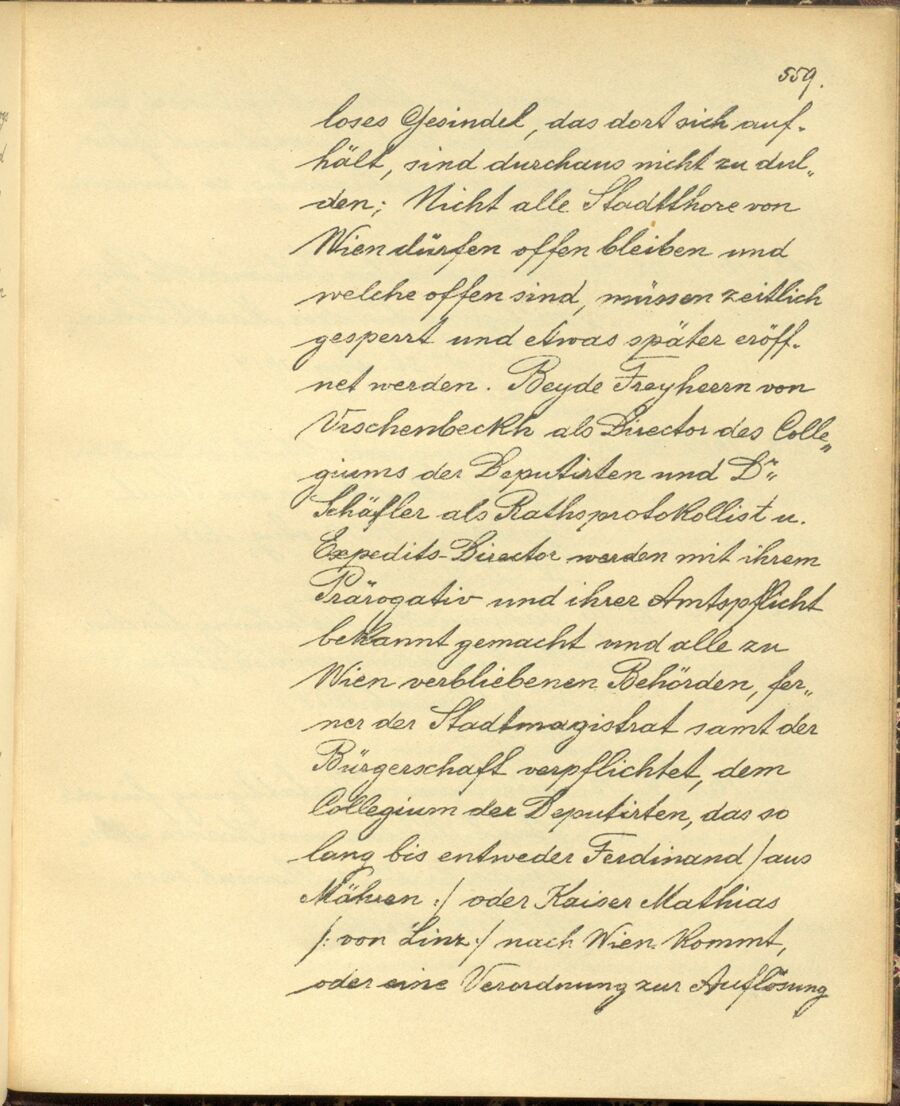 559.
loses Gesindel, das dort sich auf-
hält, sind durchaus nicht zu dul„
den; Nicht alle Stadtthore von
Wien dürfen offen bleiben und
welche offen sind, müssen zeitlich
gesperrt und etwas später eröff-
net werden. Beyde Freyherrn von
Urschenbeckh als Director des Colle„
giums der Deputirten und Dr„
Schäfler als Rathsprotokollist u.
Expedits-Director werden mit ihrem
Prärogativ und ihrer Amtspflicht
bekannt gemacht und alle zu
Wien verbliebenen Behörden, fer„
ner der Stadtmagistrat samt der
Bürgerschaft verpflichtet, dem
Collegium der Deputirten, das so
lang bis entweder Ferdinand / aus
Mähren :/ oder Kaiser Mathias
/: von Linz :/ nach Wien kommt,
oder eine Verordnung zur Auflösung